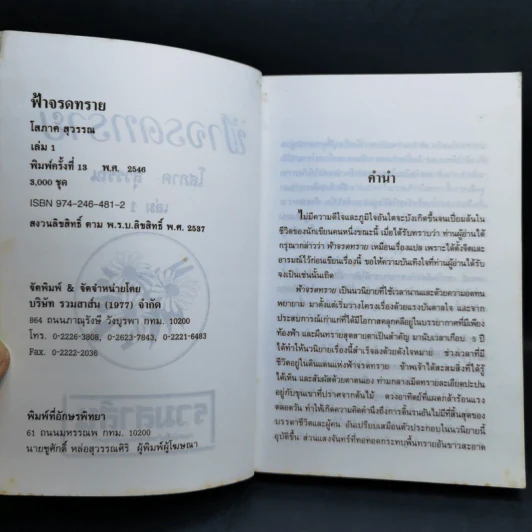 ฟ้าจรดทราย
โสภาค สุวรรณ
เล่ม 1
พิมพ์ครั้งที่ 13 พ.ศ. 2546
3,000 ชุด
ISBN 974-246-481-2
สงวนลิขสิทธิ์ ตาม พ.ร.บ.ลิขสิทธิ์ พ.ศ. 2537
จัดพิมพ์ & จัดจำหน่ายโดย
บริษัท รวมสาส์น (1977) จำกัด
864 ถนนภาณุรังษี วังบูรพา กทม. 10200
โทร. 0-2226-3808, 0-2623-7843, 0-2221-6483
Fax. 0-2222-2036
พิมพ์ที่อักษรพิทยา
61 ถนนมหรรณพ กทม. 10200
นายชูศักดิ์ หล่อสุวรรณศิริ ผู้พิมพ์ผู้โฆษณา
คำนำ
ไม่มีความดีใจและภูมิใจอันใดจะบังเกิดขึ้นจนเปี่ยมล้นใน
ชีวิตของนักเขียนคนหนึ่งขณะนี้ เมื่อได้รับทราบว่า ท่านผู้อ่านได้
กรุณากล่าวว่า ฟ้าจรดทราย เหมือนเรื่องแปล เพราะได้ตั้งจิตและ
อารมณ์ไว้ก่อนเขียนเรื่องนี้ ขอให้ความบันเทิงใจที่ท่านผู้อ่านได้รับ
จงเป็นเช่นนั้นเถิด
ฟ้าจรดทราย เป็นนวนิยายที่ใช้เวลานานและด้วยความอดทน
พยายาม มาตั้งแต่เริ่มวางโครงเรื่องด้วยแรงบันดาลใจ และจาก
ประสบการณ์เก่าแก่ที่ได้มีโอกาสคลุกคลีอยู่ในบรรยากาศที่มีเพียง
ท้องฟ้า และผืนทรายสุดสายตาเป็นสำคัญ มานับเวลาเกือบ 5 ปี
ได้ทำให้นวนิยายเรื่องนี้สำเร็จลงด้วยดังใจหมาย ช่วงเวลาที่มี
ชีวิตอยู่ในดินแดนแห่งฟ้าจรดทราย ข้าพเจ้าได้สะสมสิ่งที่ได้รู้
ได้เห็น และสัมผัสด้วยตาตนเอง ท่ามกลางเม็ดทรายละเอียดปะปน
อยู่กับขุนเขาที่ปราศจากต้นไม้ ดวงอาทิตย์ที่แผดกล้าร้อนแรง
ตลอดวัน ทำให้เกิดความคิดคำนึงถึงการดิ้นรนอันไม่มีที่สิ้นสุดของ
บรรดาชีวิตและผู้คน อันเปรียบเสมือนตัวประกอบในนวนิยายนี้
อุบัติขึ้น ส่วนแสงจันทร์ที่ทอทอดกระทบพื้นทรายอันขาวสะอาด